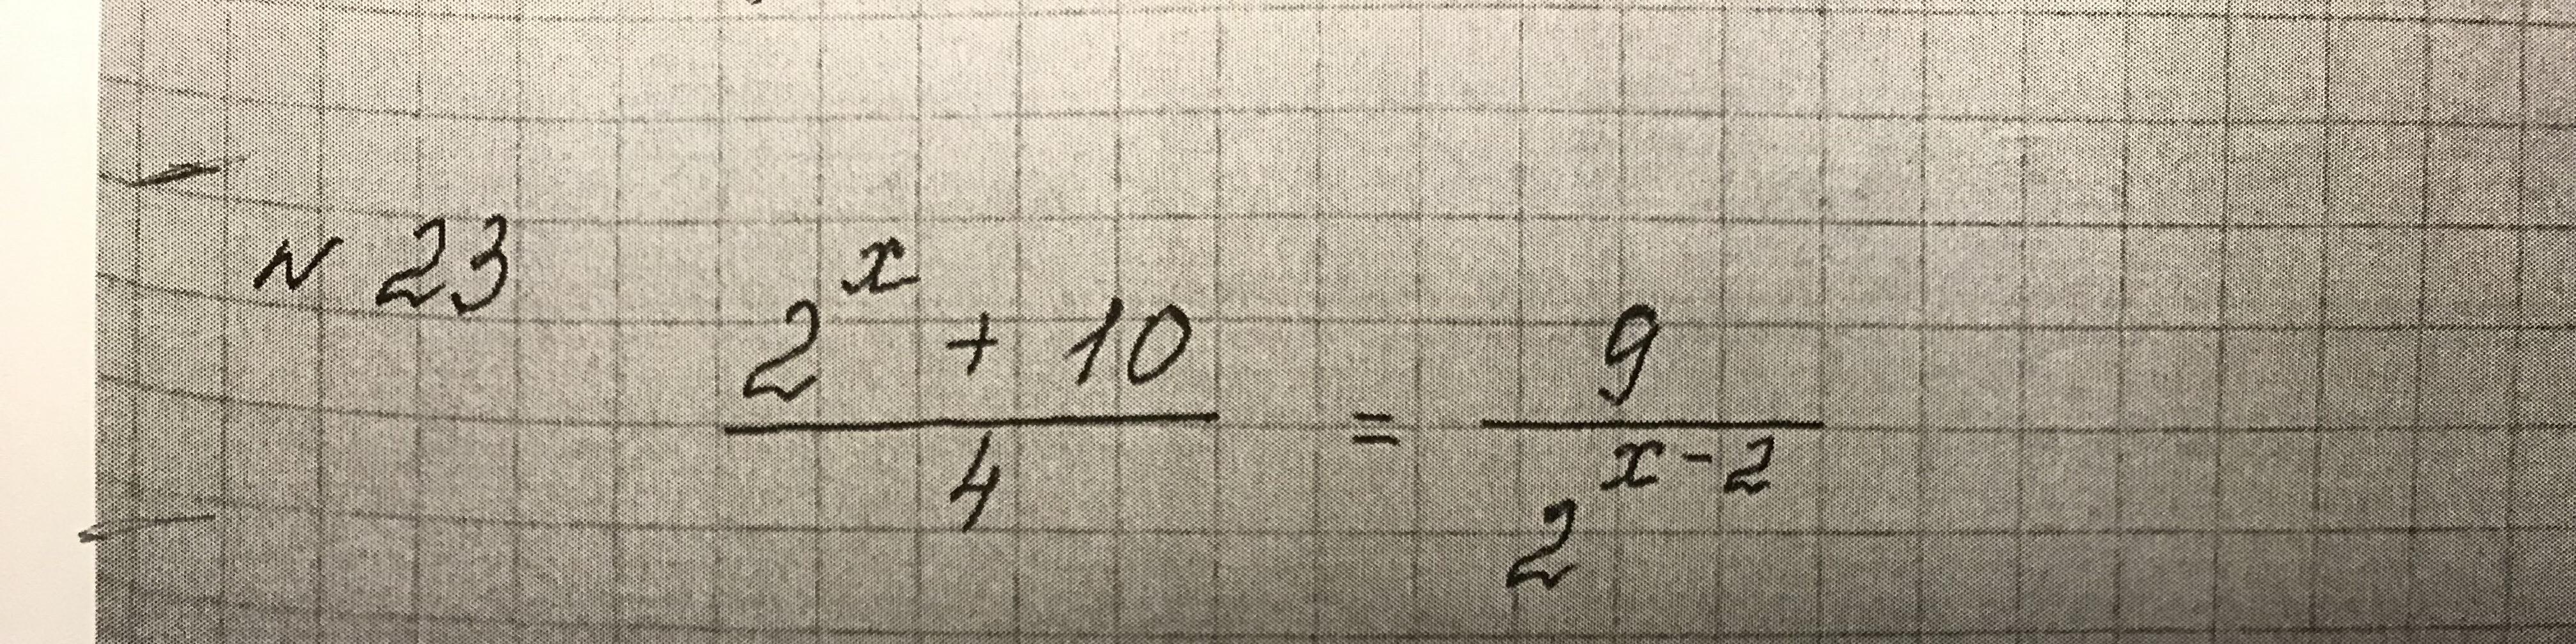 N 23 (2^x + 10)/4 = 9/2^(x-2)